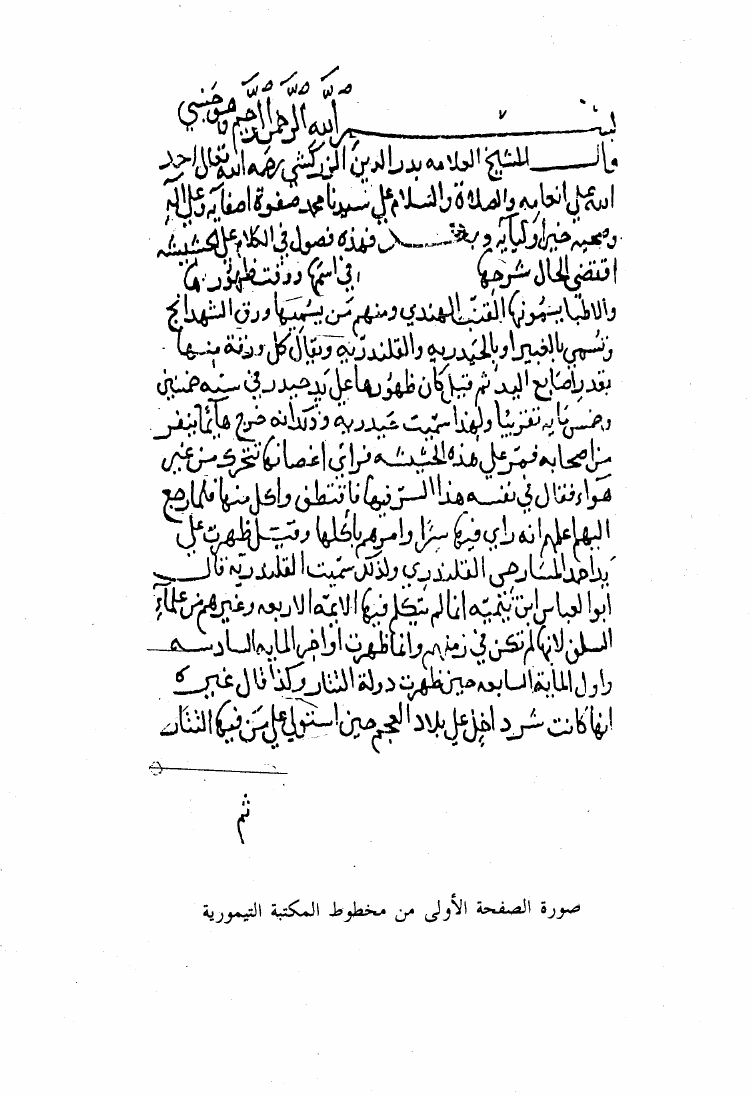 بسم الله الرحمن الرحيم وهو حسبي
قال الشيخ العلامه بدر الدين الزركشي رحمه الله تعالى احمد
الله على انعامه والصلاة والسلام على سيدنا محمد صفوة اصفيآيه وعلى اله
وصحبه خير اوليآيه وبعد فهذه فصول في الكلام على الحشيشه
اقتضى الحال شرحها في اسمها ووقت ظهورها
والاطبا يسمونها القنب الهندي ومنهم من يسميها ورق الشهدانج
وتسمى بالغبيرا وبالحيدريه والقلندريه ويقال كل ورقة منها
بقدر اصابع اليد ثم قيل كان ظهورها على يد حيدر في سنه خمسين
وخمس مايه تقريبا ولهذا سميت حيدريه وذلك انه خرج هآيما ينفر
من اصحابه فمر على هذه الحشيشه فرأي اغصانها تتحرك من غير
هواء فقال في نفسه هذا السر فيها فاقتطف واكل منها فلما رجع
اليهم اعلمهم انه راي فيها سرا وامرهم باكلها وقيل ظهرت على
يد احمد القلندري ولذلك سميت القلندريه قال
ابو العباس ابن تيميه انما لم يتكلم فيها الايمه الاربعه وغيرهم من علمآء
السلف لانها لم تكن في زمنهم وانما ظهرت اواخر المايه السادسه
واول الماية السابعه حين ظهرت دولة التتار وكذا قال غيره
انها كانت شر داخل على بلاد العجم حين استولى على من فيها التتار
ثم
صورة الصفحة الأولى من مخطوط المكتبة التيمورية